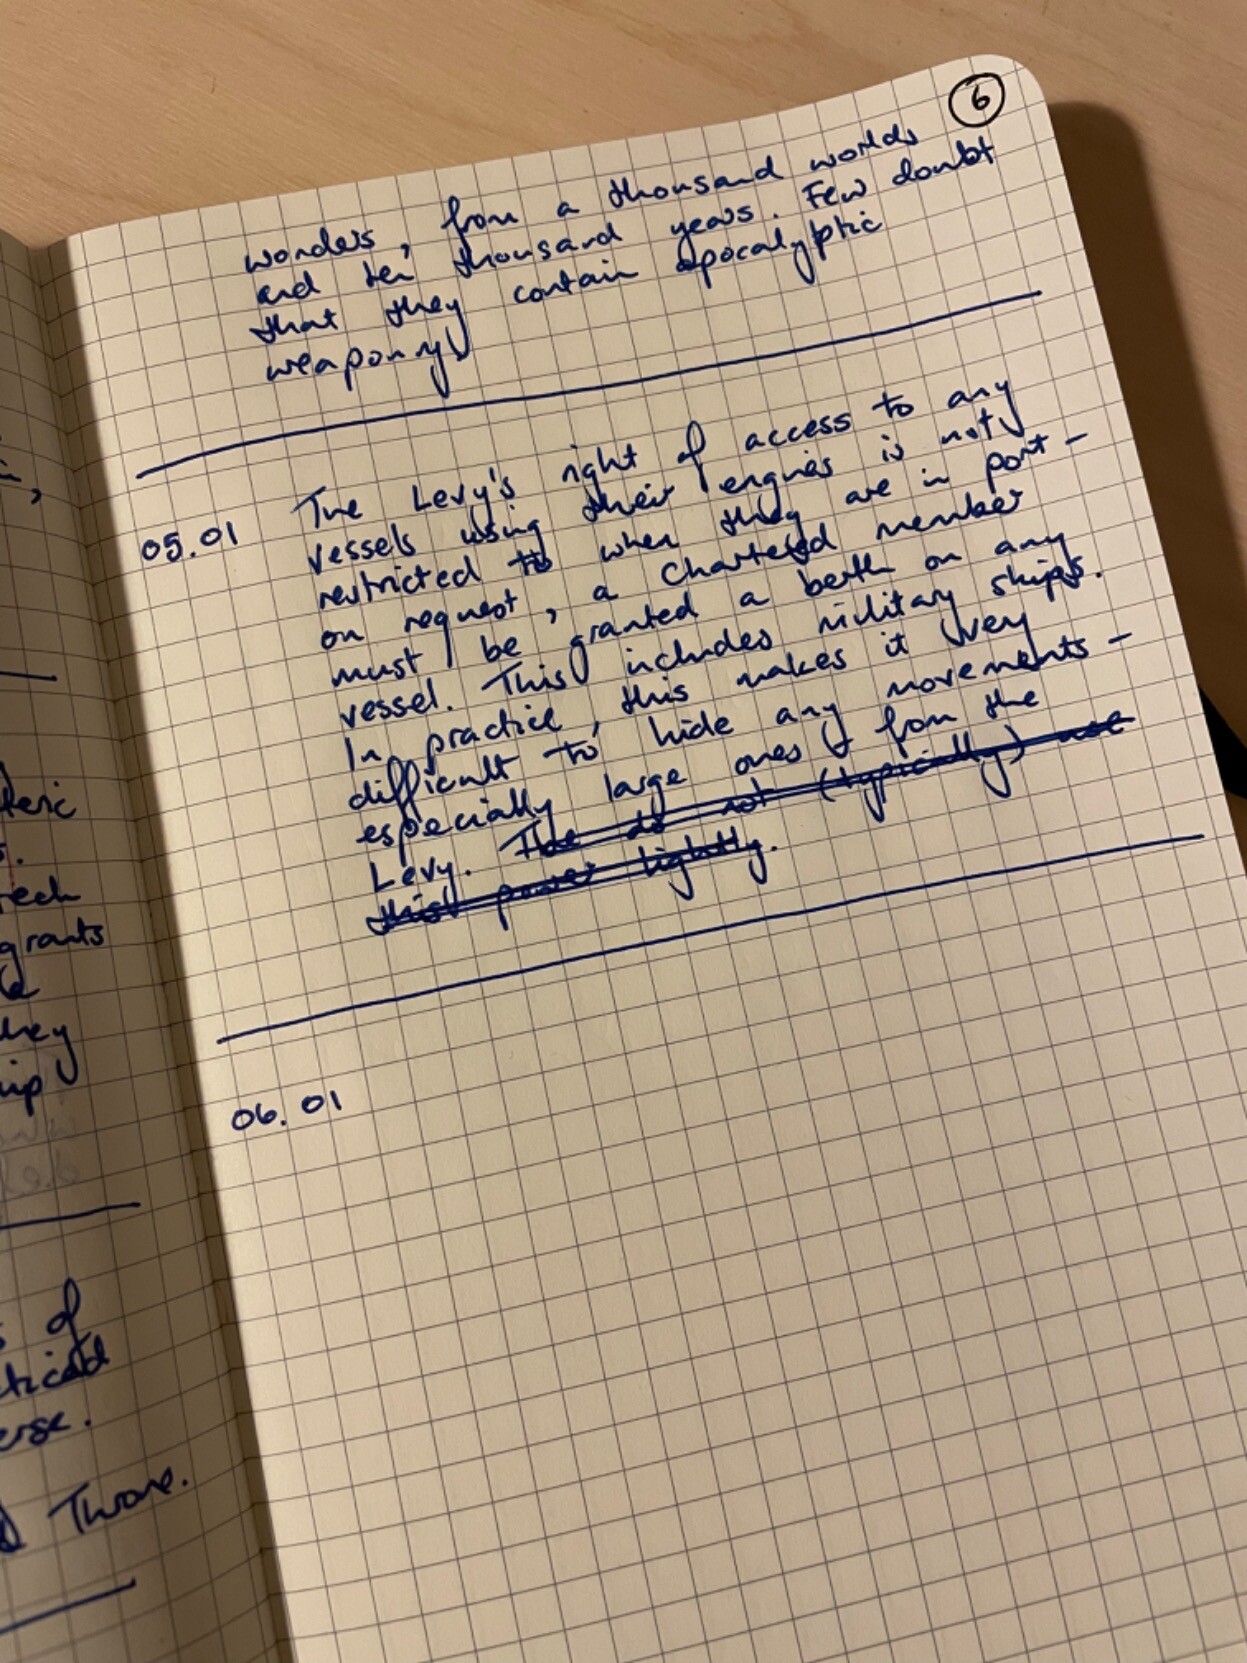 6
wonders, from a thousand worlds
and ten thousand years. Few doubt
that they contain apocalyptic
weaponry
05.01 The Levy's right of access to any
vessels using their engines is not
restricted to when they are in port –
on request, a chartered member
must be granted a berth on any
vessel. This includes military ships.
In practice, this makes it very
difficult to hide any movements –
especially large ones – from the
Levy. The do not (typically) use
this power lightly.
06.01
teric
reech
grants
hey
hip
of
erse.
Throne.